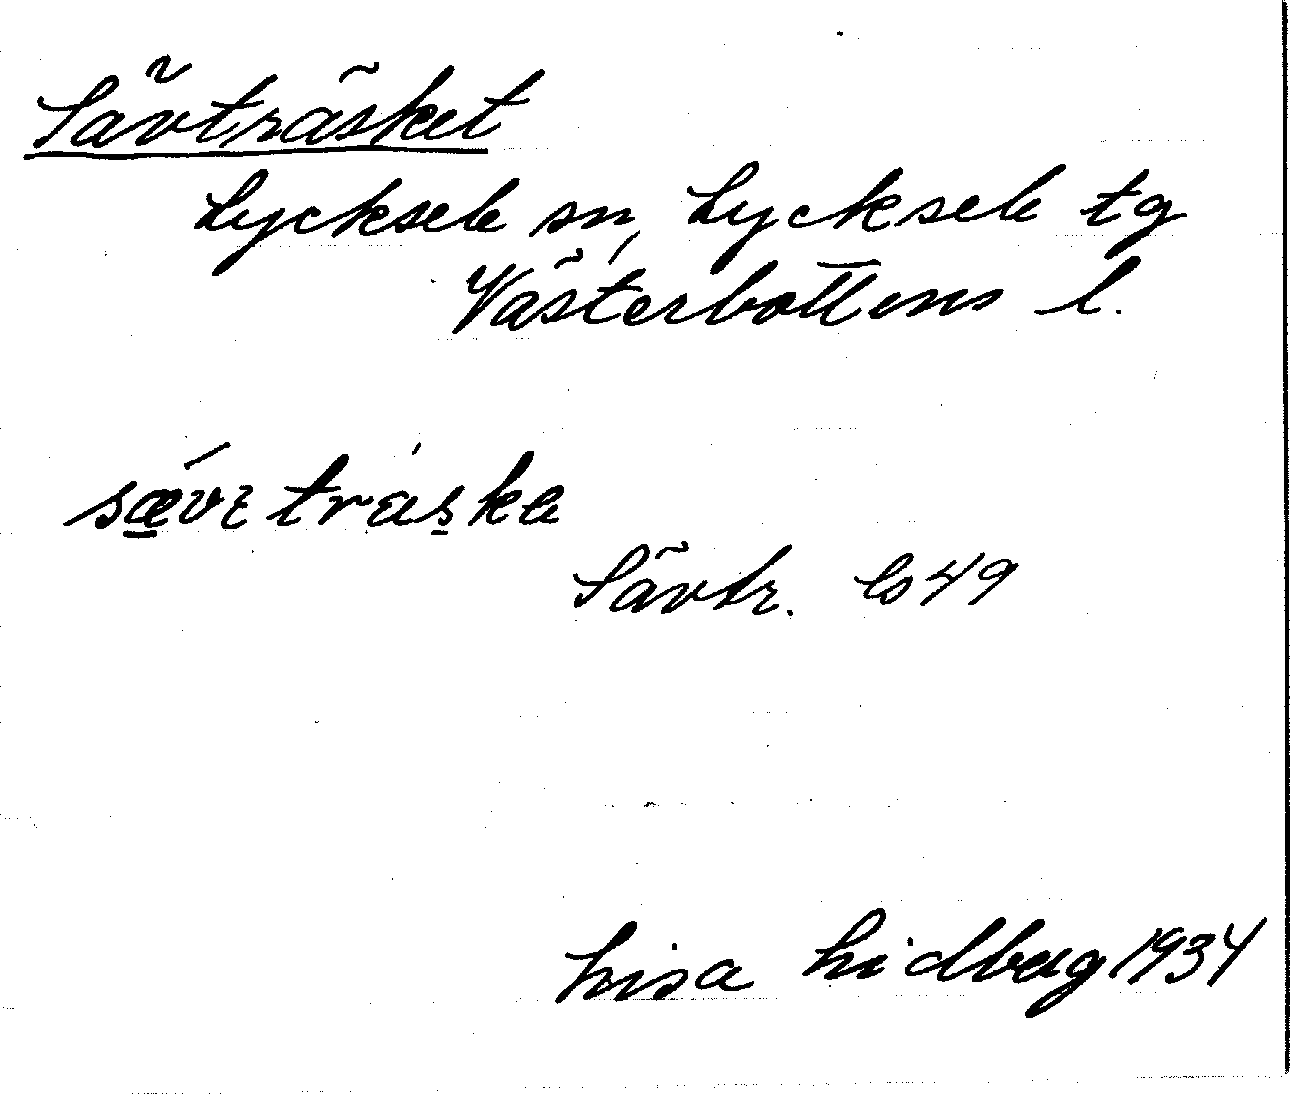 Sävträsket
Lycksele sn, Lycksele tg
Västerbottens l.
sǽvɩtràska
Sävtr. Eo 49
Lisa Lidberg 1934